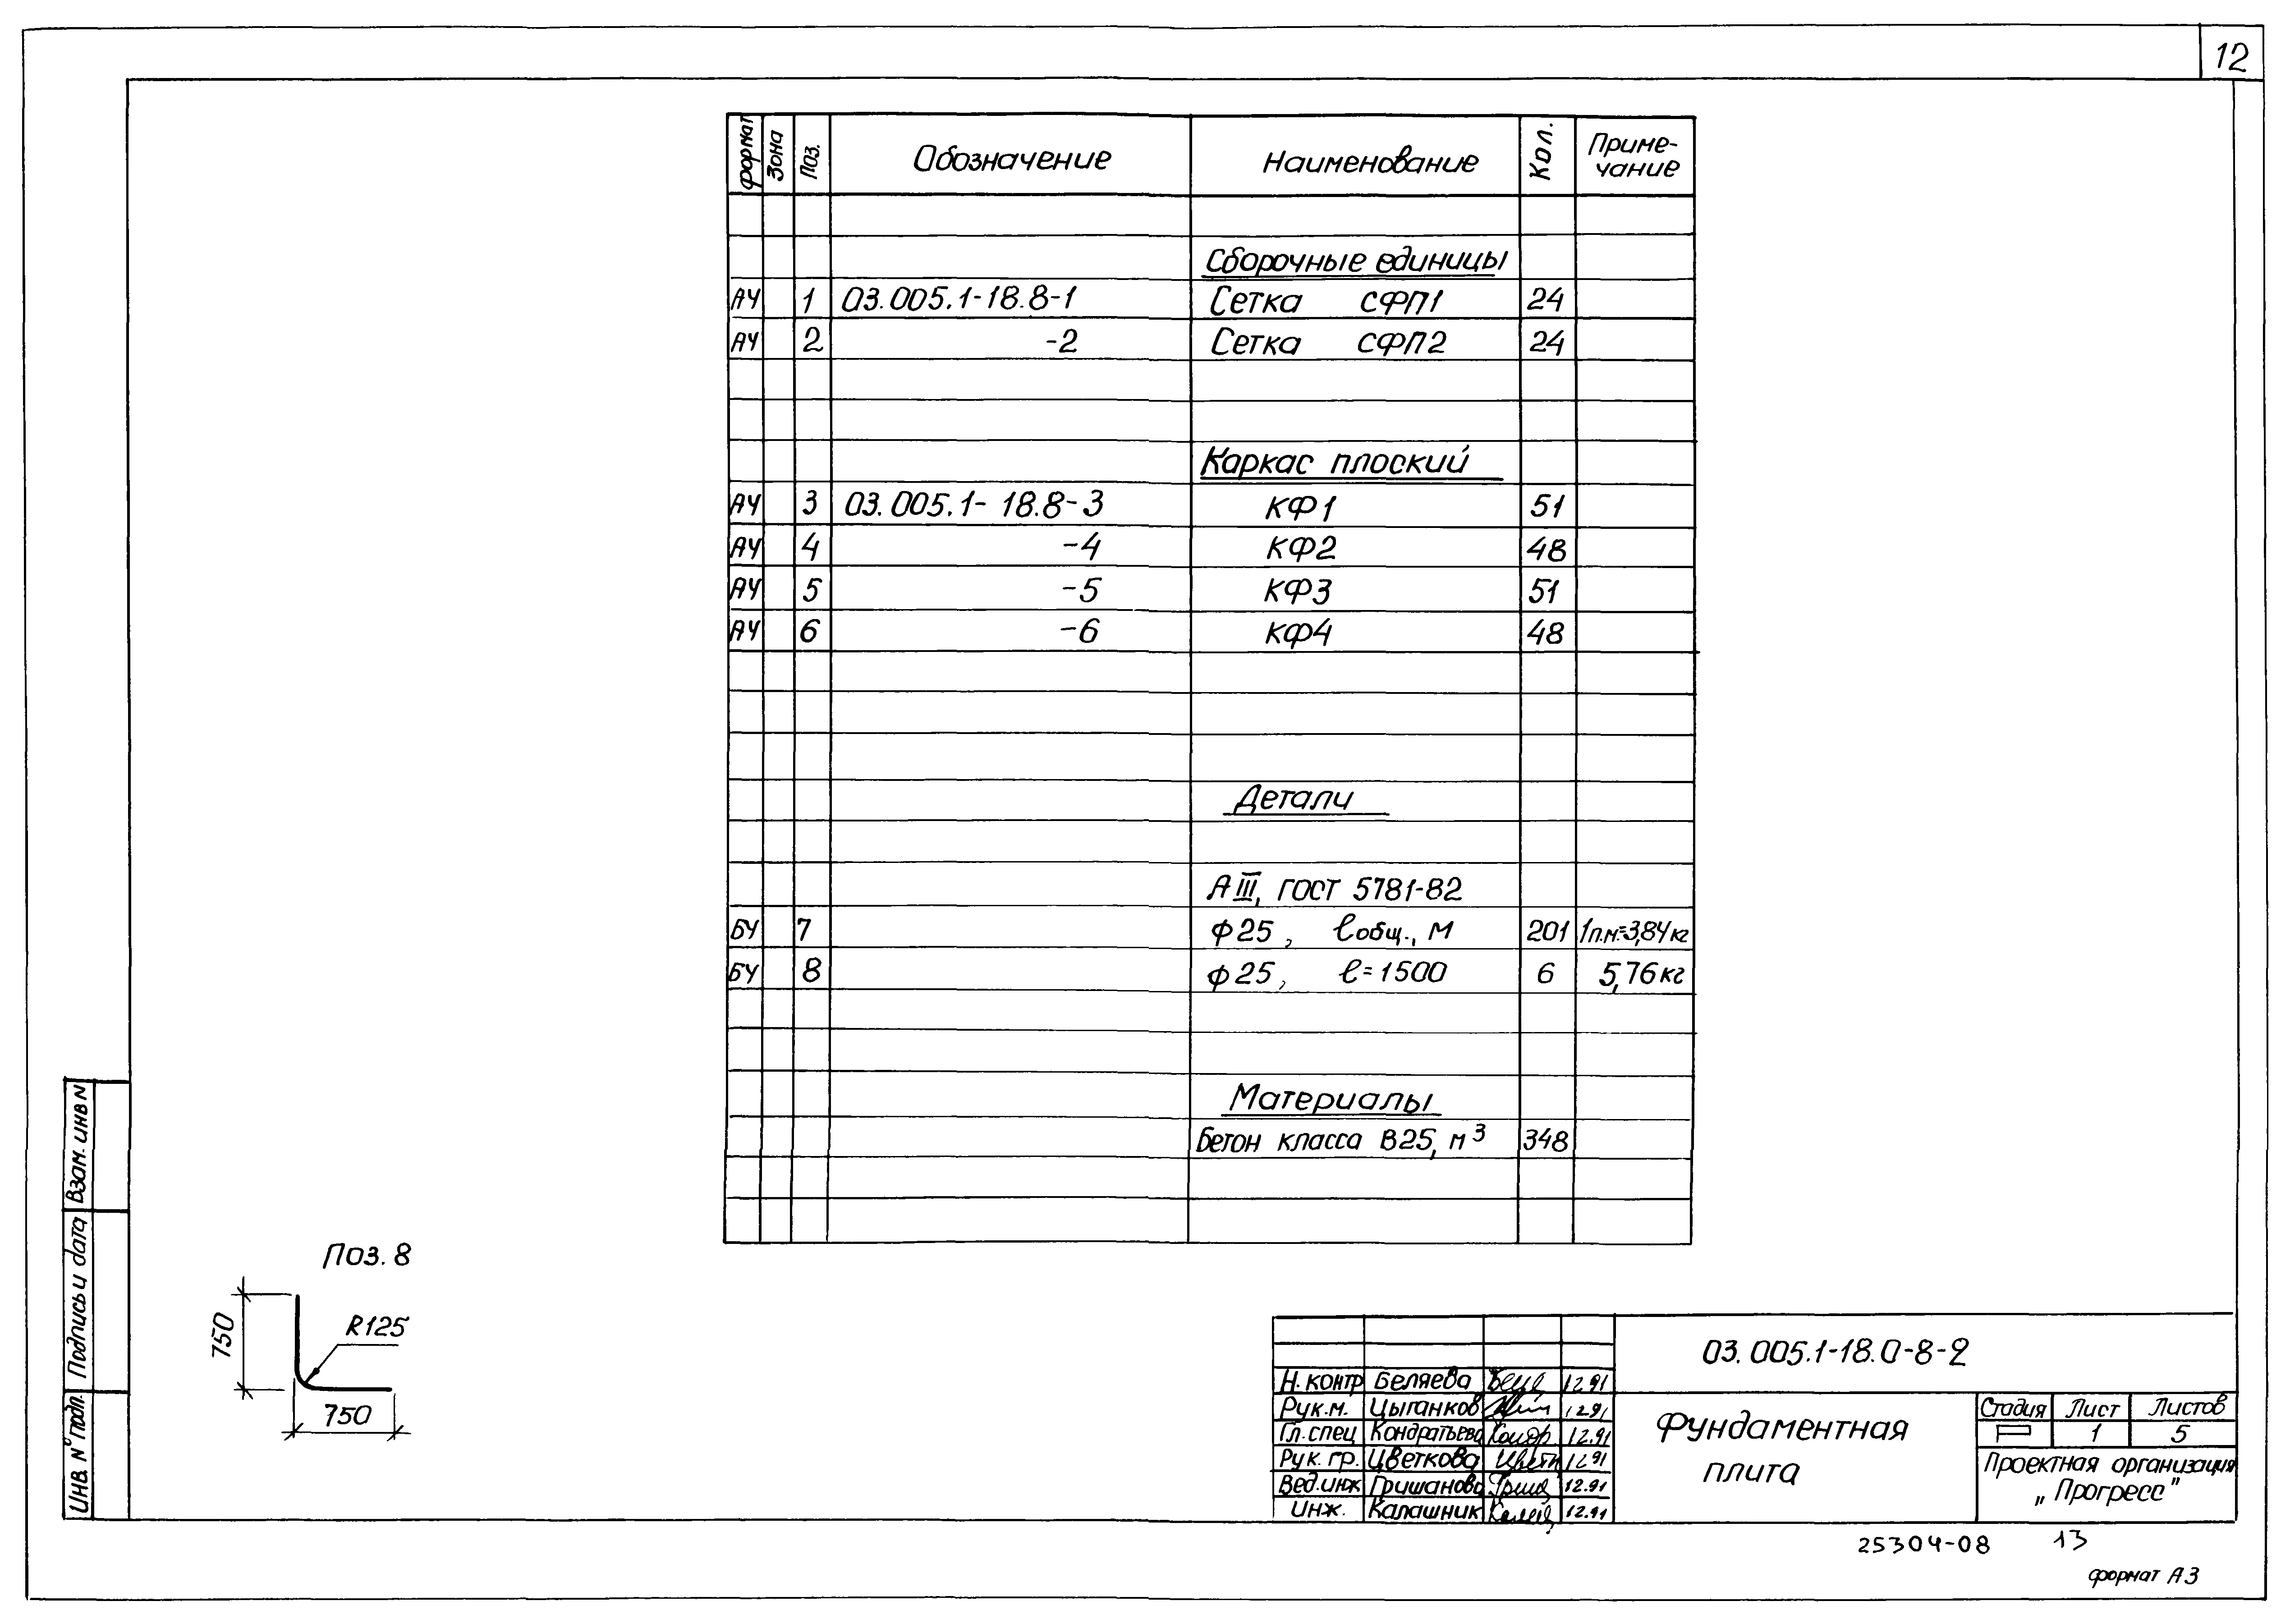 12
формат Зона Поз. Обозначение Наименование Кол. Приме-чание
Сборочные единицы
А4 1 03.005.1-18.8-1 Сетка СФП1 24
А4 2 -2 Сетка СФП2 24
Каркас плоский
А4 3 03.005.1-18.8-3 КФ1 51
А4 4 -4 КФ2 48
А4 5 -5 КФ3 51
А4 6 -6 КФ4 48
Детали
АIII, ГОСТ 5781-82
БЧ 7 ф25, ℓобщ., м 201 1п.м.=3,84кг
БЧ 8 ф25, ℓ=1500 6 5,76кг
Материалы
Бетон класса В25, м³ 348
Поз. 8
750
R125
750
Взам. инв N
Подпись и дата
Инв. N° подл.
03.005.1-18.0-8-2
Н.контр Беляева 12.91
Рук.м. Цыганков 12.91
Гл.спец Кондратьева 12.91
Рук. гр. Цветкова 12.91
Вед.инж Гришанова 12.91
Инж. Калашник 12.91
Фундаментная
плита
Стадия Лист Листов
Р 1 5
Проектная организация
„Прогресс"
25304-08 13
формат А3